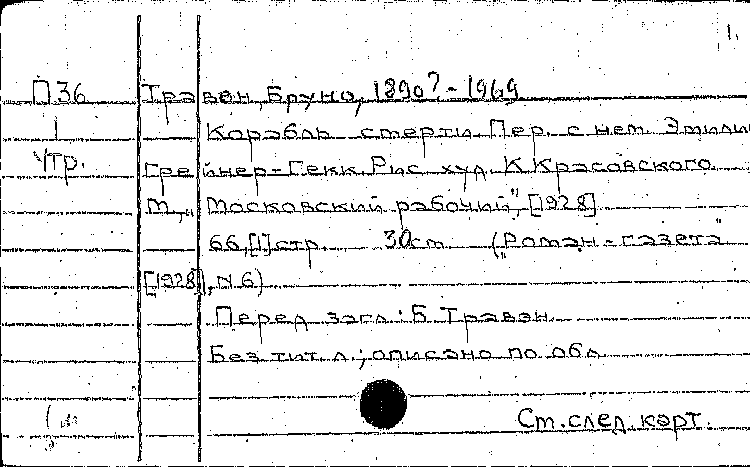 1.
П36 Травен, Бруно, 1890? - 1969
1 Корабль смерти. Пер. с нем. Эмилии
Утр. Грейнер-Гекк. Рис. худ. К. Красовского.
М., „Московский рабочий", [1928]
66, [1] стр. 30 см. („Роман-газета"
[1928], N 6)
Перед загл.: Б. Травэн.
Без тит. л.; описано по обл.
См. след. карт.